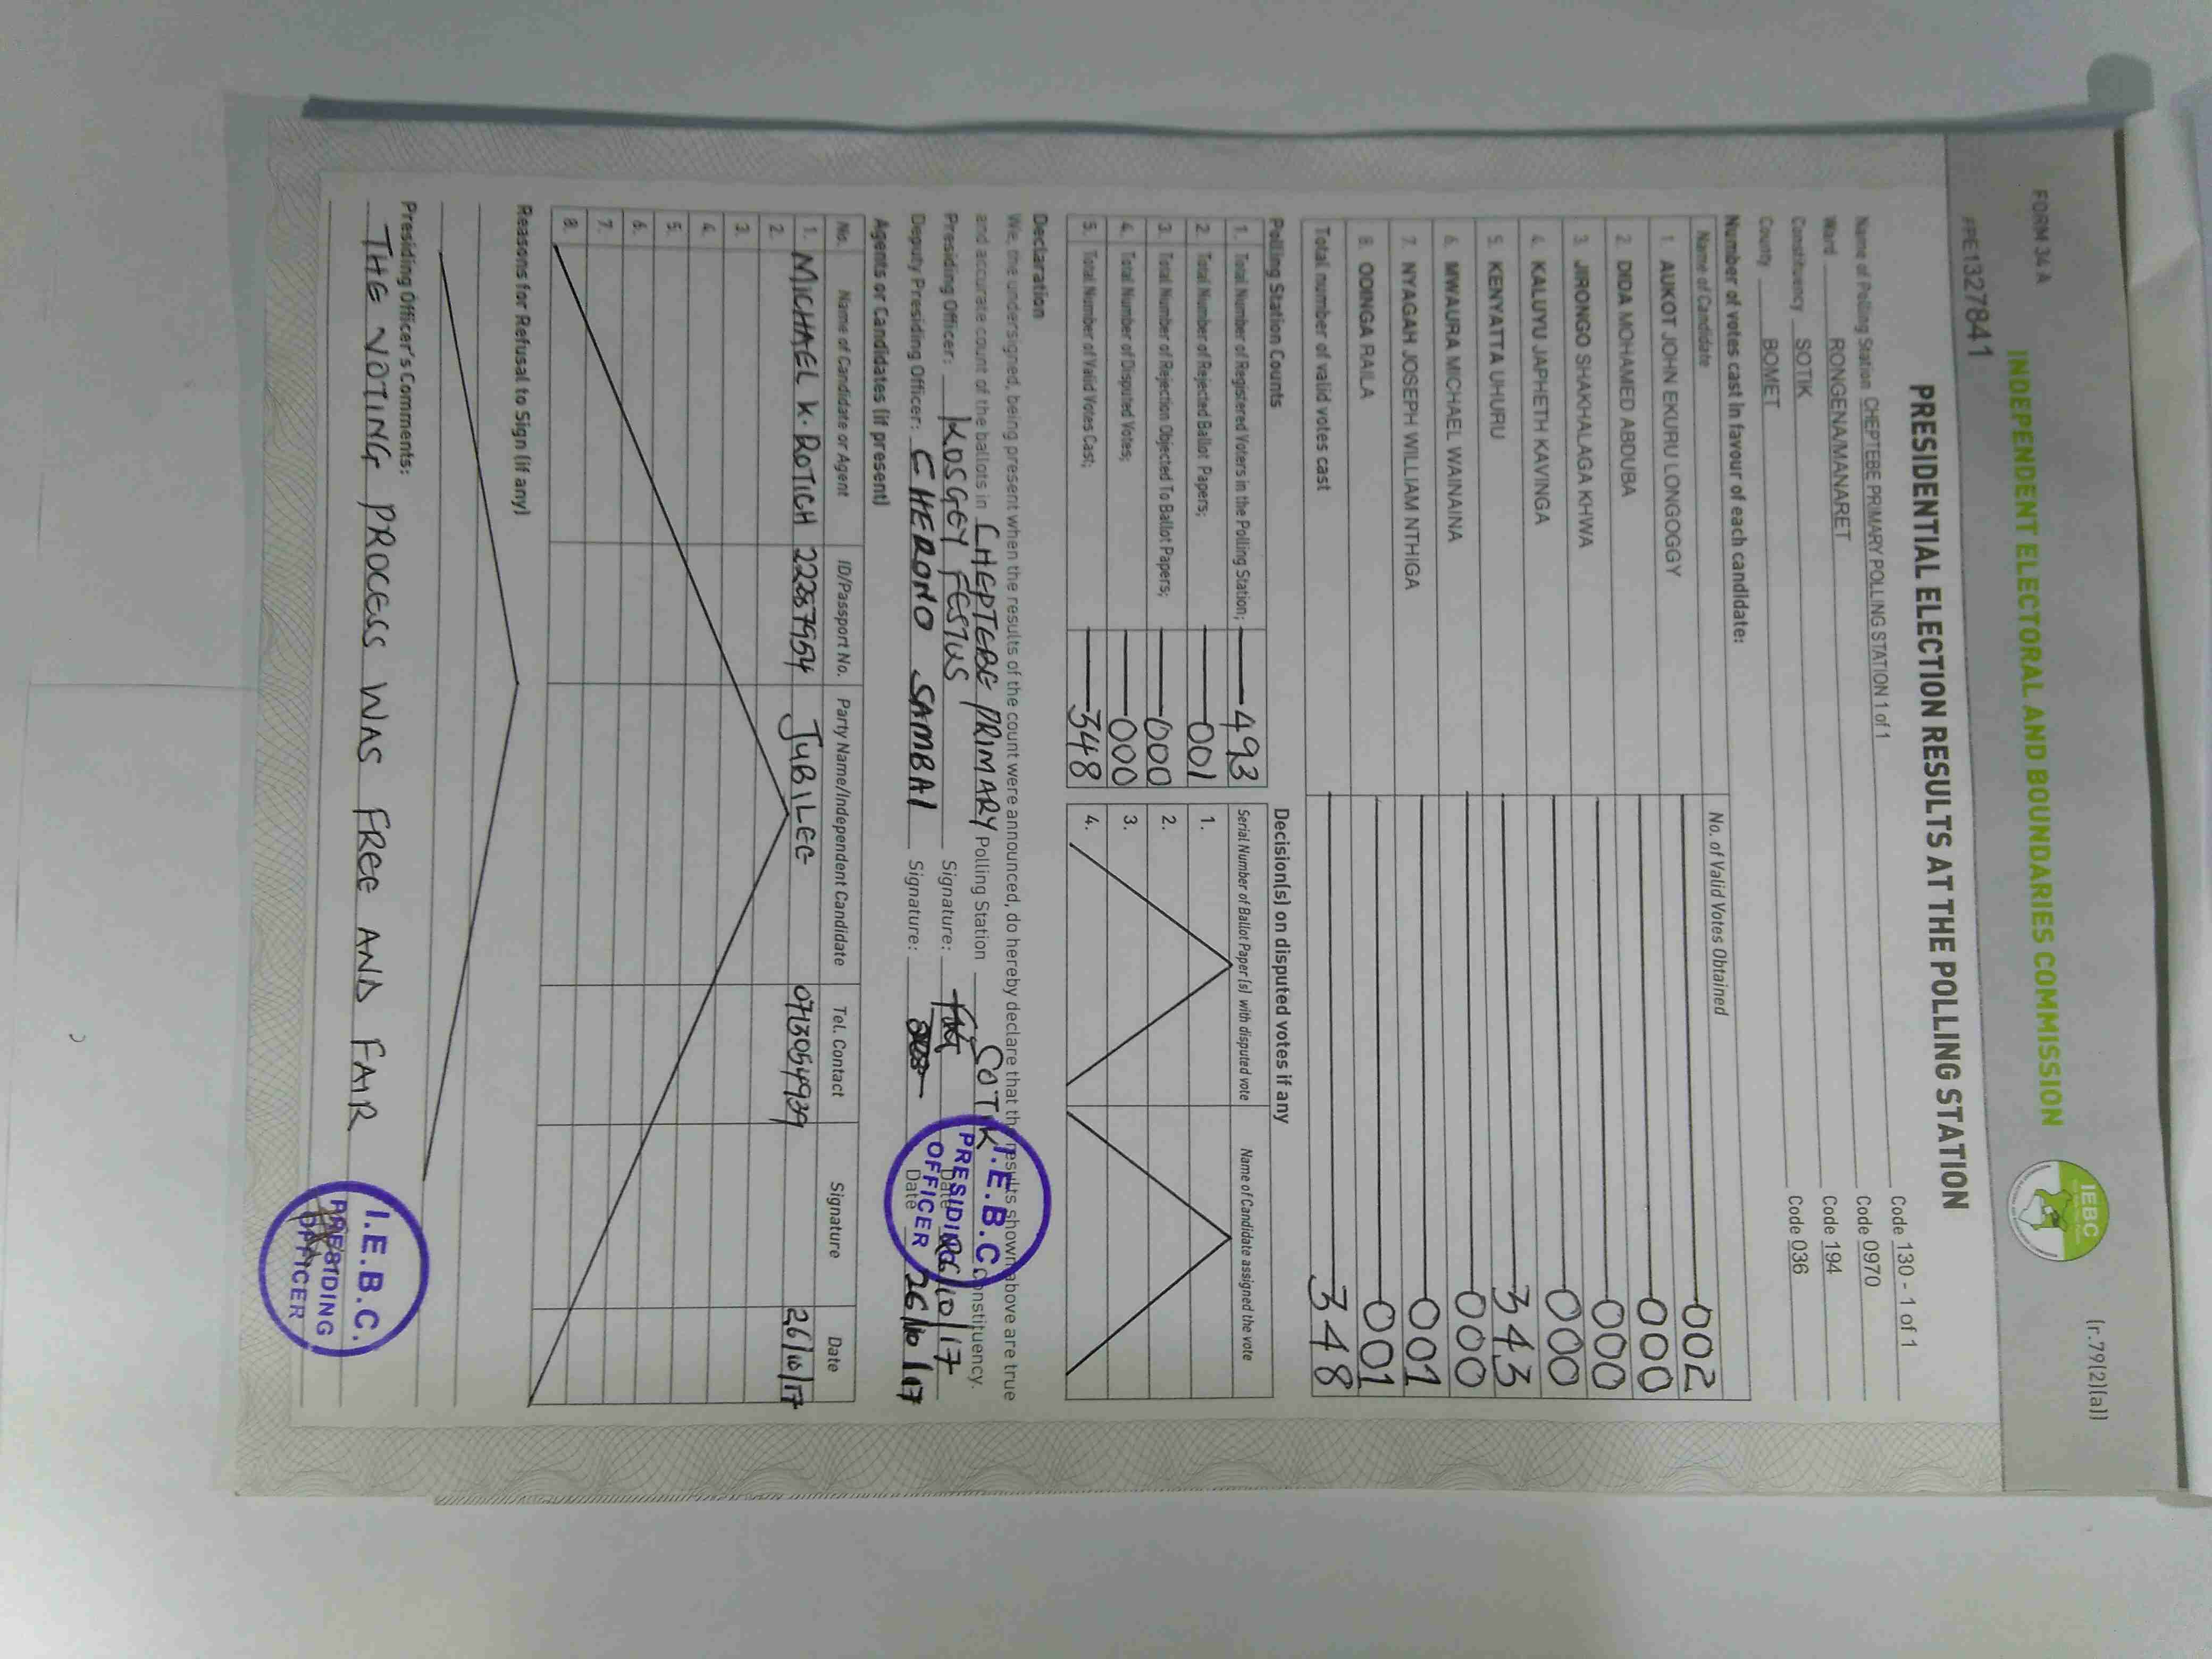 FORM 34 A
(r.79(2)(a))
INDEPENDENT ELECTORAL AND BOUNDARIES COMMISSION
IEBC
PPE1327841
PRESIDENTIAL ELECTION RESULTS AT THE POLLING STATION
Name of Polling Station CHEPTEBE PRIMARY POLLING STATION 1 of 1 Code 130 - 1 of 1
Ward RONGENA/MANARET Code 0970
Constituency SOTIK Code 194
County BOMET Code 036
Number of votes cast in favour of each candidate:
Name of Candidate No. of Valid Votes Obtained
1. AUKOT JOHN EKURU LONGOGGY 002
2. DIDA MOHAMED ABDUBA 000
3. JIRONGO SHAKHALAGA KHWA 000
4. KALUYU JAPHETH KAVINGA 000
5. KENYATTA UHURU 343
6. MWAURA MICHAEL WAINAINA 000
7. NYAGAH JOSEPH WILLIAM NTHIGA 001
8. ODINGA RAILA 001
Total number of valid votes cast 348
Polling Station Counts
1. Total Number of Registered Voters in the Polling Station; 493
2. Total Number of Rejected Ballot Papers; 001
3. Total Number of Rejection Objected To Ballot Papers; 000
4. Total Number of Disputed Votes; 000
5. Total Number of Valid Votes Cast; 348
Decision(s) on disputed votes if any
Serial Number of Ballot Paper(s) with disputed vote Name of Candidate assigned the vote
1.
2.
3.
4.
Declaration
We, the undersigned, being present when the results of the count were announced, do hereby declare that the results shown above are true
and accurate count of the ballots in CHEPTEBE PRIMARY Polling Station SOTIK Constituency.
Presiding Officer: KOSGEY FESTUS Signature: Date 26/10/17
Deputy Presiding Officer: CHERONO SAMBAI Signature: Date 26/10/17
I.E.B.C.
PRESIDING
OFFICER
Agents or Candidates (if present)
No. Name of Candidate or Agent ID/Passport No. Party Name/Independent Candidate Tel. Contact Signature Date
1. MICHAEL K. ROTICH 22287954 JUBILEE 0713054939 26/10/17
2.
3.
4.
5.
6.
7.
8.
Reasons for Refusal to Sign (if any)
Presiding Officer's Comments:
THE VOTING PROCESS WAS FREE AND FAIR
I.E.B.C.
PRESIDING
OFFICER